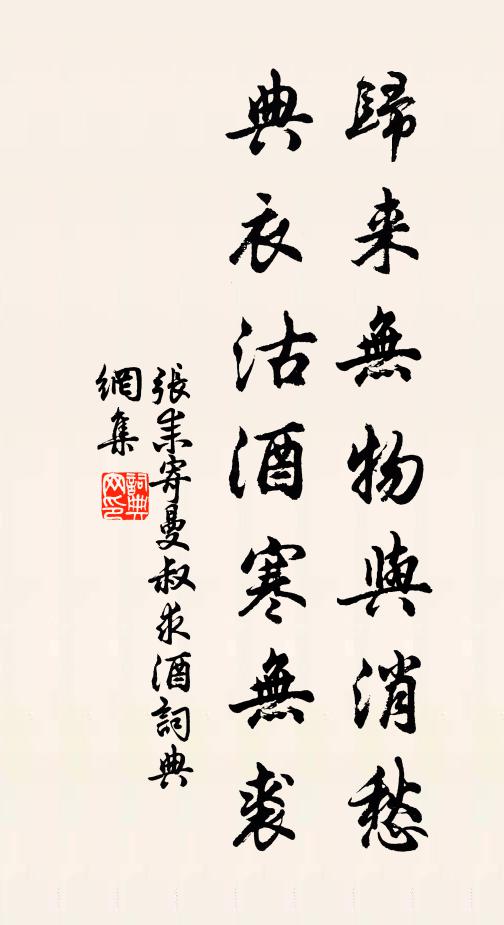 歸来無物與消愁
典衣沽酒寒無裘
張耒寄曼叔求酒詞典
網集
詞典
网印